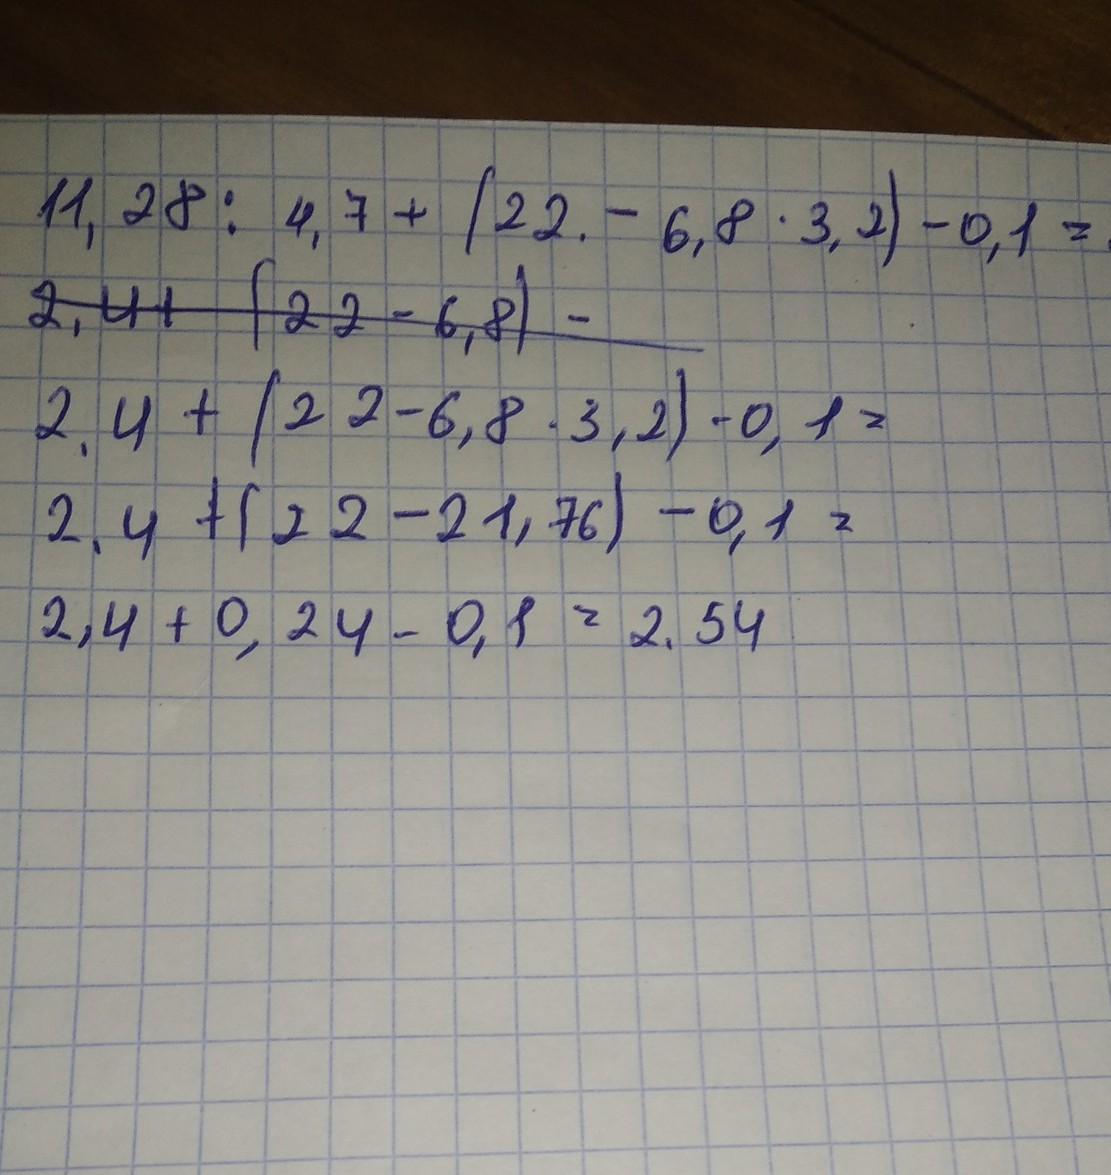 11,28 : 4,7 + (22. - 6,8 · 3,2) - 0,1 =
2,4+ (22 - 6,8) -
2,4 + (22 - 6,8 · 3,2) - 0,1 =
2,4 + (22 - 21,76) - 0,1 =
2,4 + 0,24 - 0,1 = 2.54